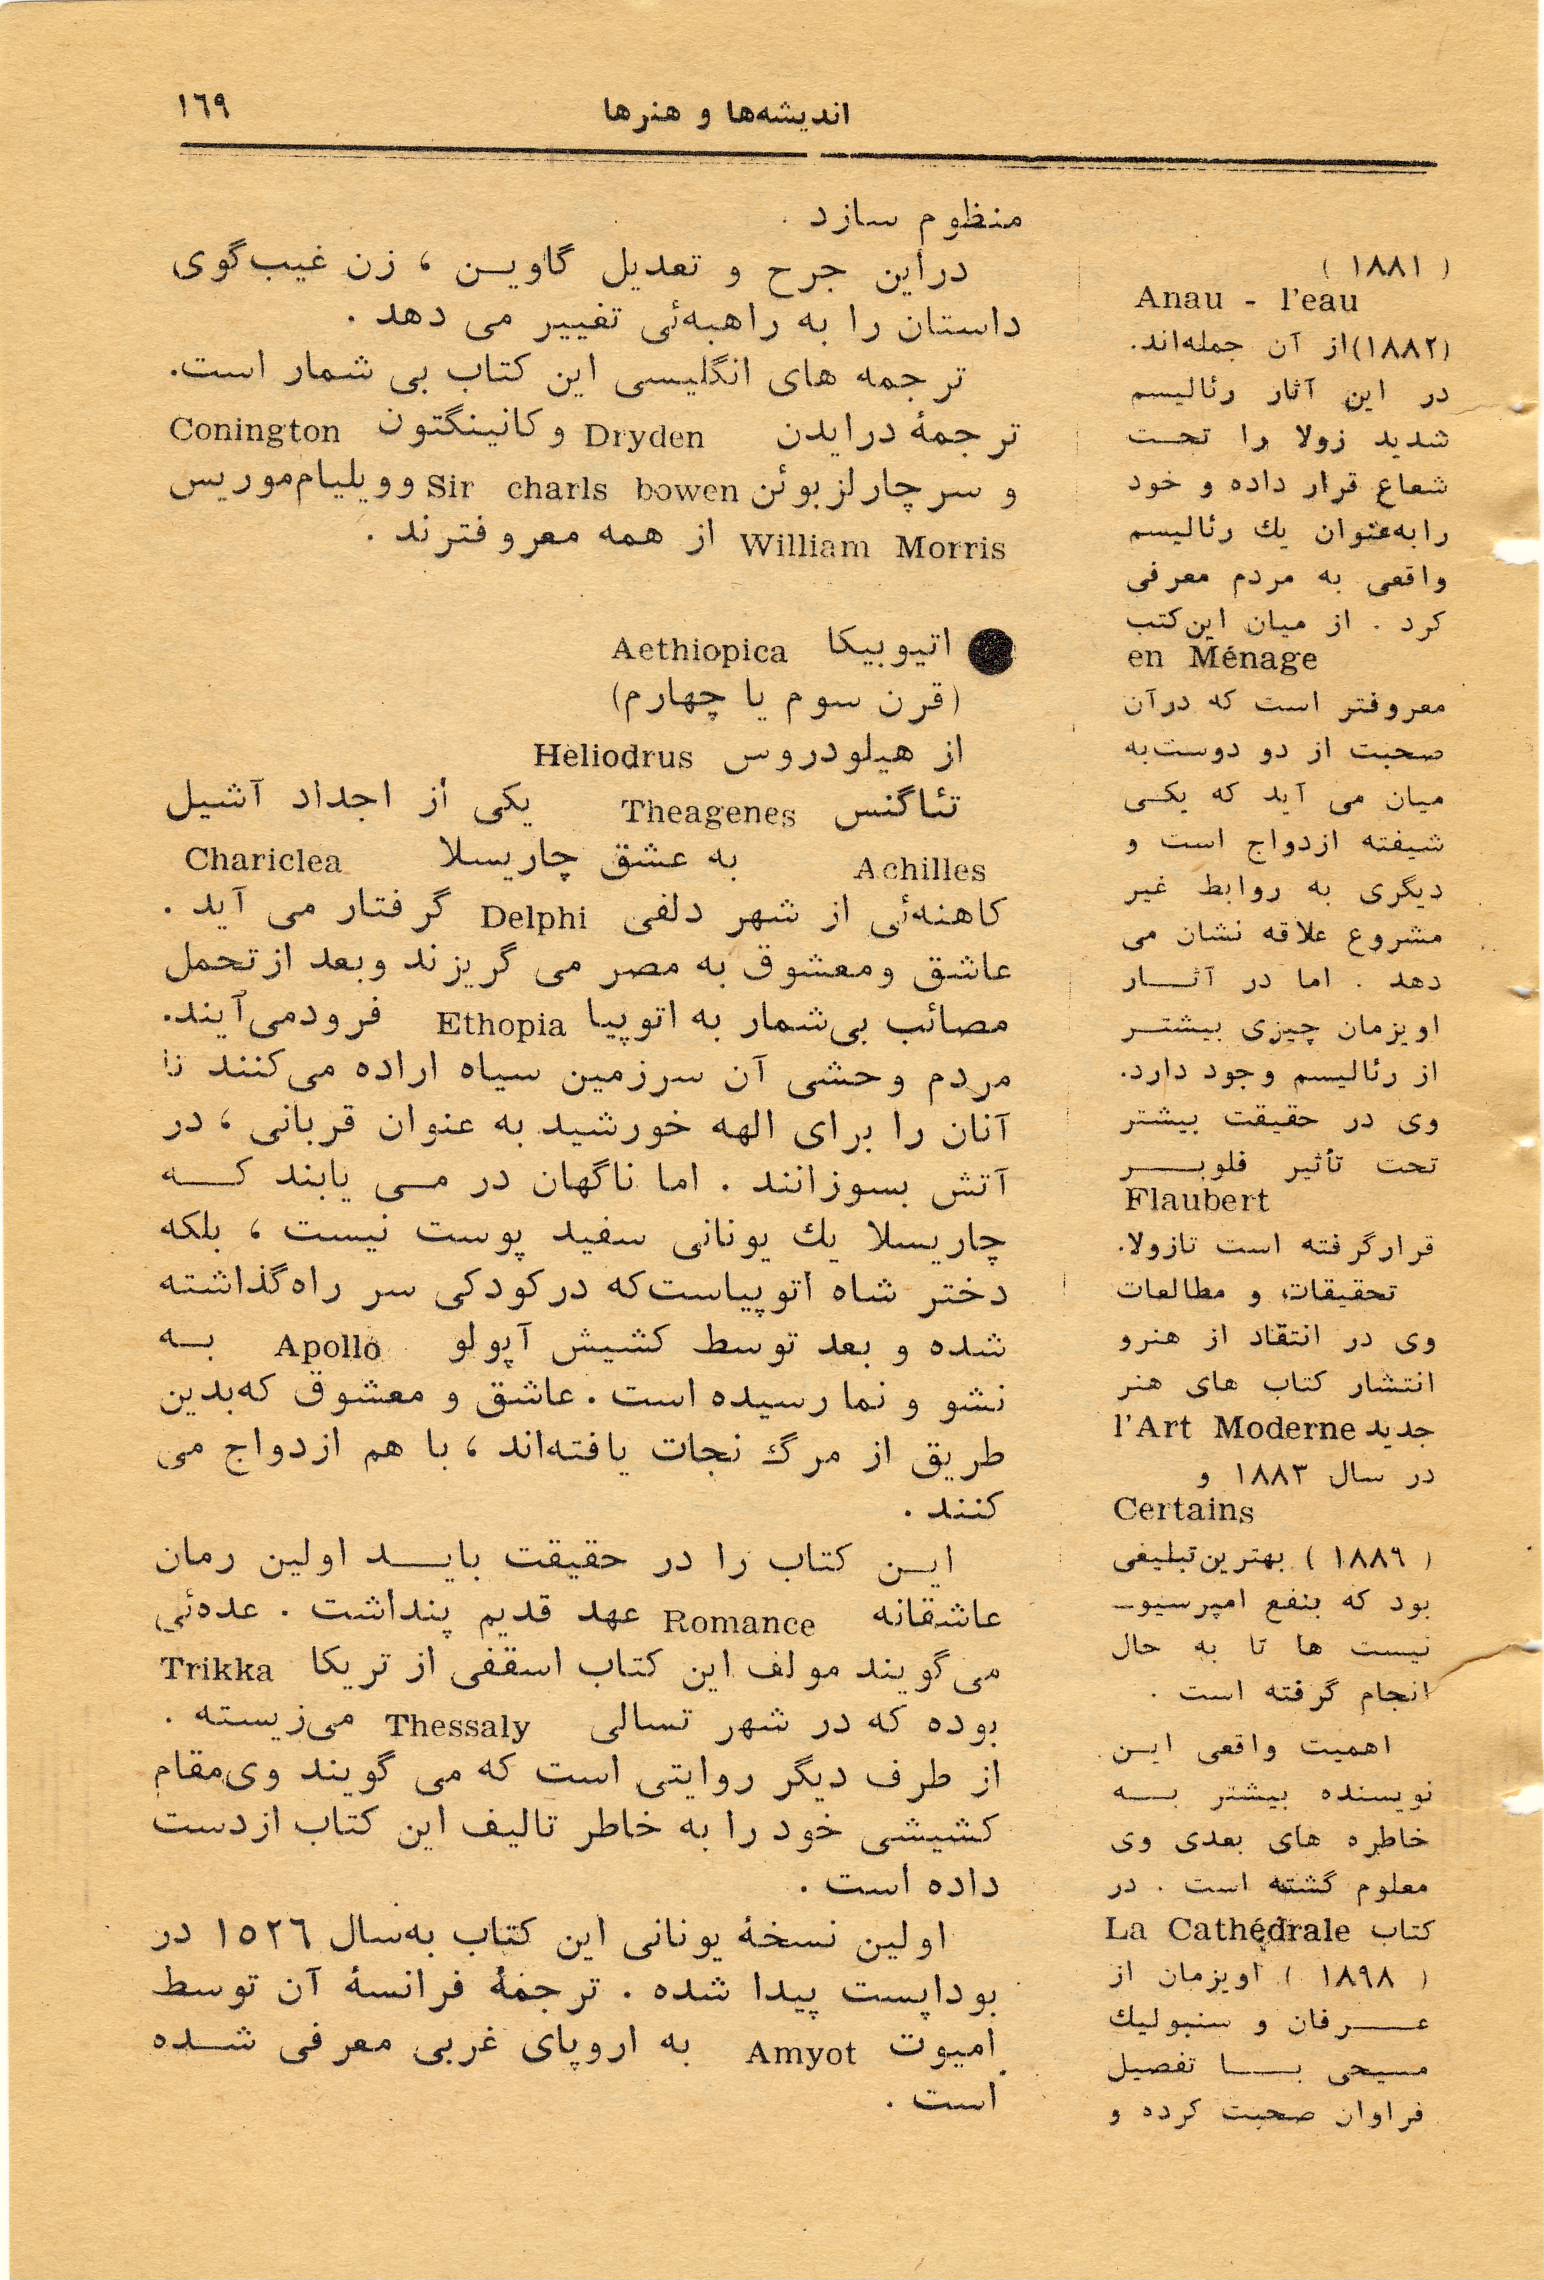 اندیشه‌ها و هنرها
١٦٩
( ١٨٨١ )
Anau - l'eau
(١٨٨٢)از آن جمله‌اند.
در این آثار رئالیسم
شدید زولا را تحت
شعاع قرار داده و خود
رابه‌عنوان یك رئالیسم
واقعی به مردم معرفی
کرد . از میان این‌کتب
en Ménage
معروفتر است که درآن
صحبت از دو دوست‌به
میان می آید که یکی
شیفته ازدواج است و
دیگری به روابط غیر
مشروع علاقه نشان می
دهد . اما در آثار
اویزمان چیزی بیشتر
از رئالیسم وجود دارد.
وی در حقیقت بیشتر
تحت تأثیر فلوبر
Flaubert
قرارگرفته است تازولا.
تحقیقات و مطالعات
وی در انتقاد از هنرو
انتشار کتاب های هنر
جدید l'Art Moderne
در سال ١٨٨٣ و
Certains
( ١٨٨٩ ) بهترین‌تبلیغی
بود که بنفع امپرسیو-
نیست ها تا به حال
انجام گرفته است .
اهمیت واقعی این
نویسنده بیشتر به
خاطره های بعدی وی
معلوم گشته است . در
کتاب La Cathédrale
( ١٨٩٨ ) اویزمان از
عرفان و سنبولیك
مسیحی با تفصیل
فراوان صحبت کرده و
منظوم سازد .
دراین جرح و تعدیل گاوین ، زن غیب‌گوی
داستان را به راهبه‌ئی تغییر می دهد .
ترجمه های انگلیسی این کتاب بی شمار است.
ترجمهٔ درایدن Dryden و کانینگتون Conington
و سرچارلزبوئن Sir charls bowen وویلیام‌موریس
William Morris از همه معروفترند .
● اتیوبیکا Aethiopica
(قرن سوم یا چهارم)
از هیلودروس Heliodrus
تئاگنس Theagenes یکی از اجداد آشیل
Achilles به عشق چاریسلا Chariclea
کاهنه‌ئی از شهر دلفی Delphi گرفتار می آید .
عاشق ومعشوق به مصر می گریزند وبعد ازتحمل
مصائب بی‌شمار به اتوپیا Ethopia فرودمی‌آیند.
مردم وحشی آن سرزمین سیاه اراده می‌کنند تا
آنان را برای الهه خورشید به عنوان قربانی ، در
آتش بسوزانند . اما ناگهان در می یابند که
چاریسلا یك یونانی سفید پوست نیست ، بلکه
دختر شاه اتوپیاست‌که درکودکی سر راه‌گذاشته
شده و بعد توسط کشیش آپولو Apollo به
نشو و نما رسیده است . عاشق و معشوق که‌بدین
طریق از مرگ نجات یافته‌اند ، با هم ازدواج می
کنند .
این کتاب را در حقیقت باید اولین رمان
عاشقانه Romance عهد قدیم پنداشت . عده‌ئی
می‌گویند مولف این کتاب اسقفی از تریکا Trikka
بوده که در شهر تسالی Thessaly می‌زیسته .
از طرف دیگر روایتی است که می گویند وی‌مقام
کشیشی خود را به خاطر تالیف این کتاب ازدست
داده است .
اولین نسخهٔ یونانی این کتاب به‌سال ١٥٢٦ در
بوداپست پیدا شده . ترجمهٔ فرانسهٔ آن توسط
امیوت Amyot به اروپای غربی معرفی شده
است .